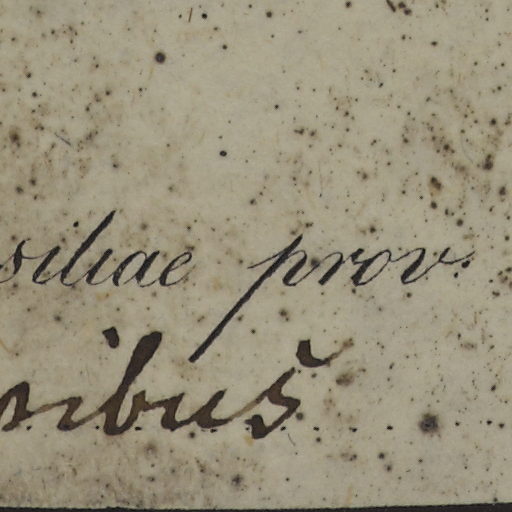 siliae prov.
ribuš